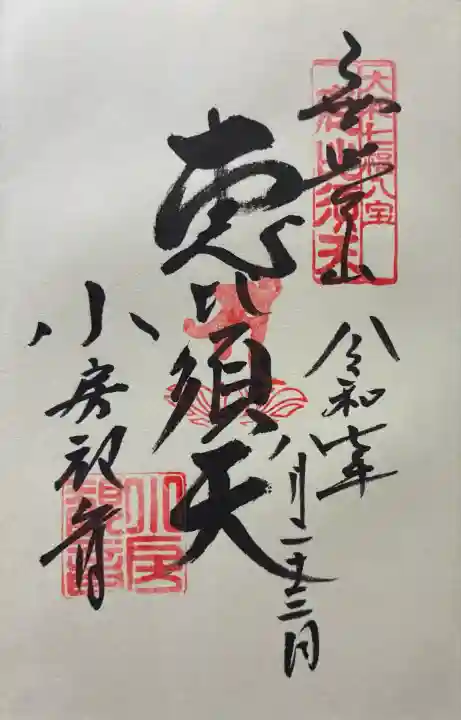 大和七福八宝
恵比須天
無量山
令和七年
八月二十三日
恵比須天
小房観音
小房
観音